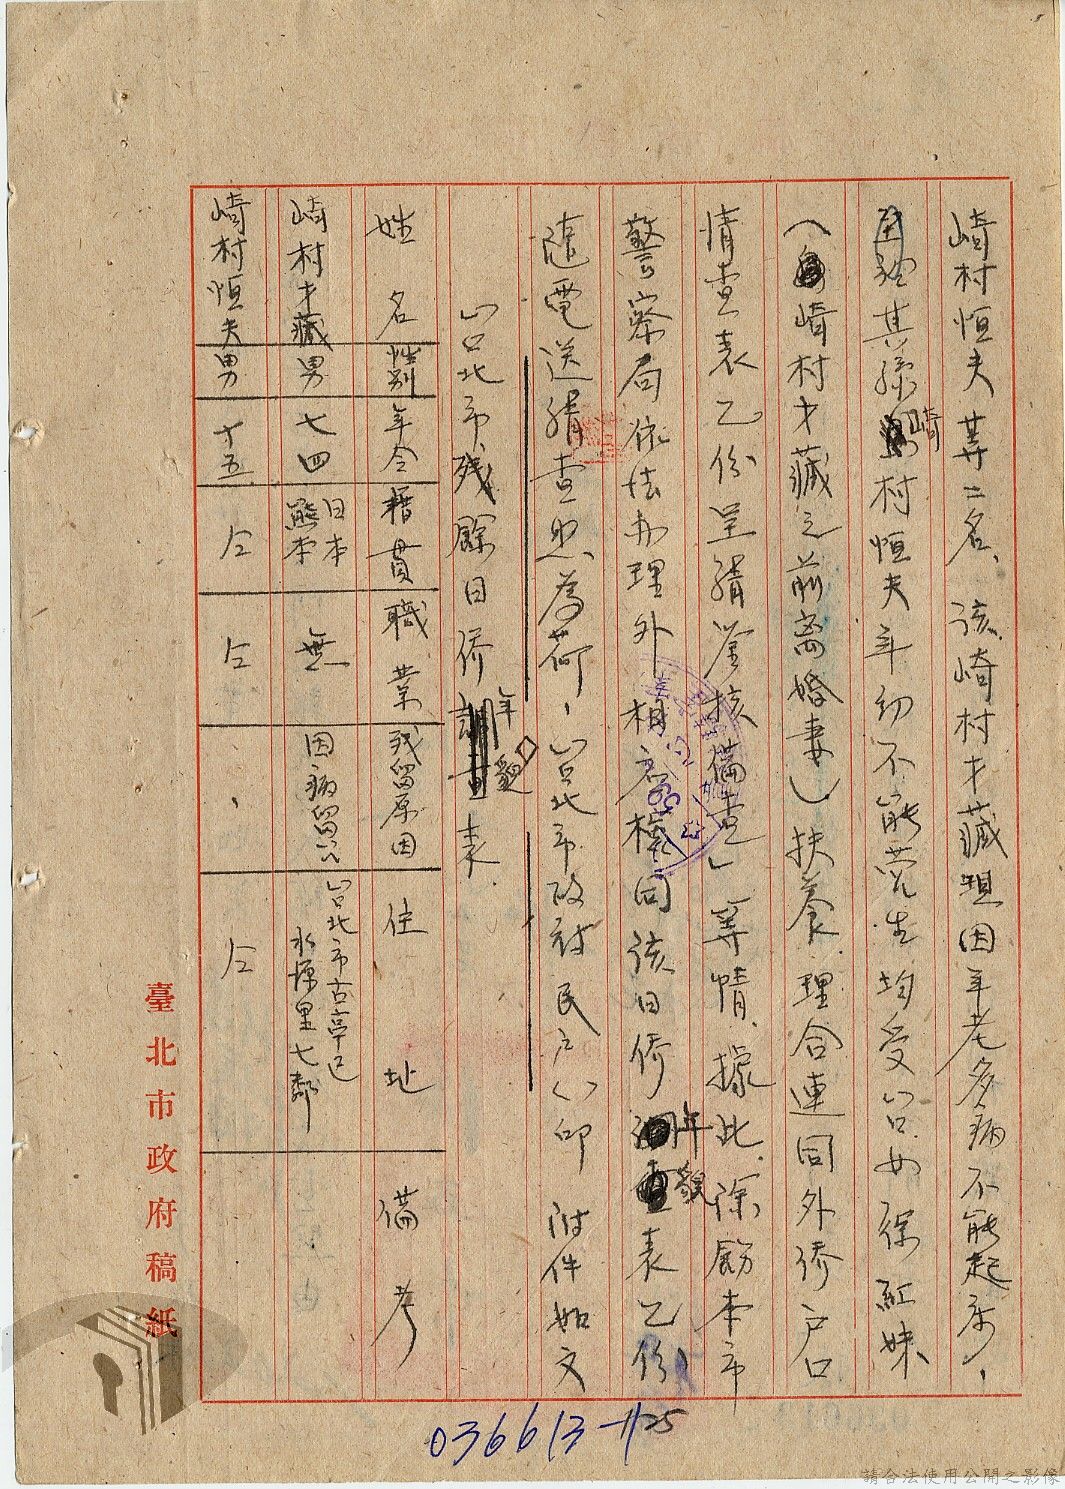 崎村恒夫等二名、該崎村才藏現因年老多病不能起床、
其孫崎村恒夫年幼不能营生均受台女徐紅妹
(崎村才藏之前离婚妻)扶养理合連同外侨户口
情查表乙份呈請鉴核備查」等情、據此、除飭本市
警察局依法办理外相应檢同該日侨年貌表乙份
隨電送請查照為荷、台北市政府民户()印 附件如文
台北市残餘日侨年貌表
姓名 性别 年令 籍貫 職業 残留原因 住址 備考
崎村才藏 男 七四 日本熊本 無 因病留台 台北市古亭区水源里七鄰
崎村恒夫 男 十五 仝 仝 、 仝
臺北市政府稿紙
036613-11
25
請合法使用公開之影像